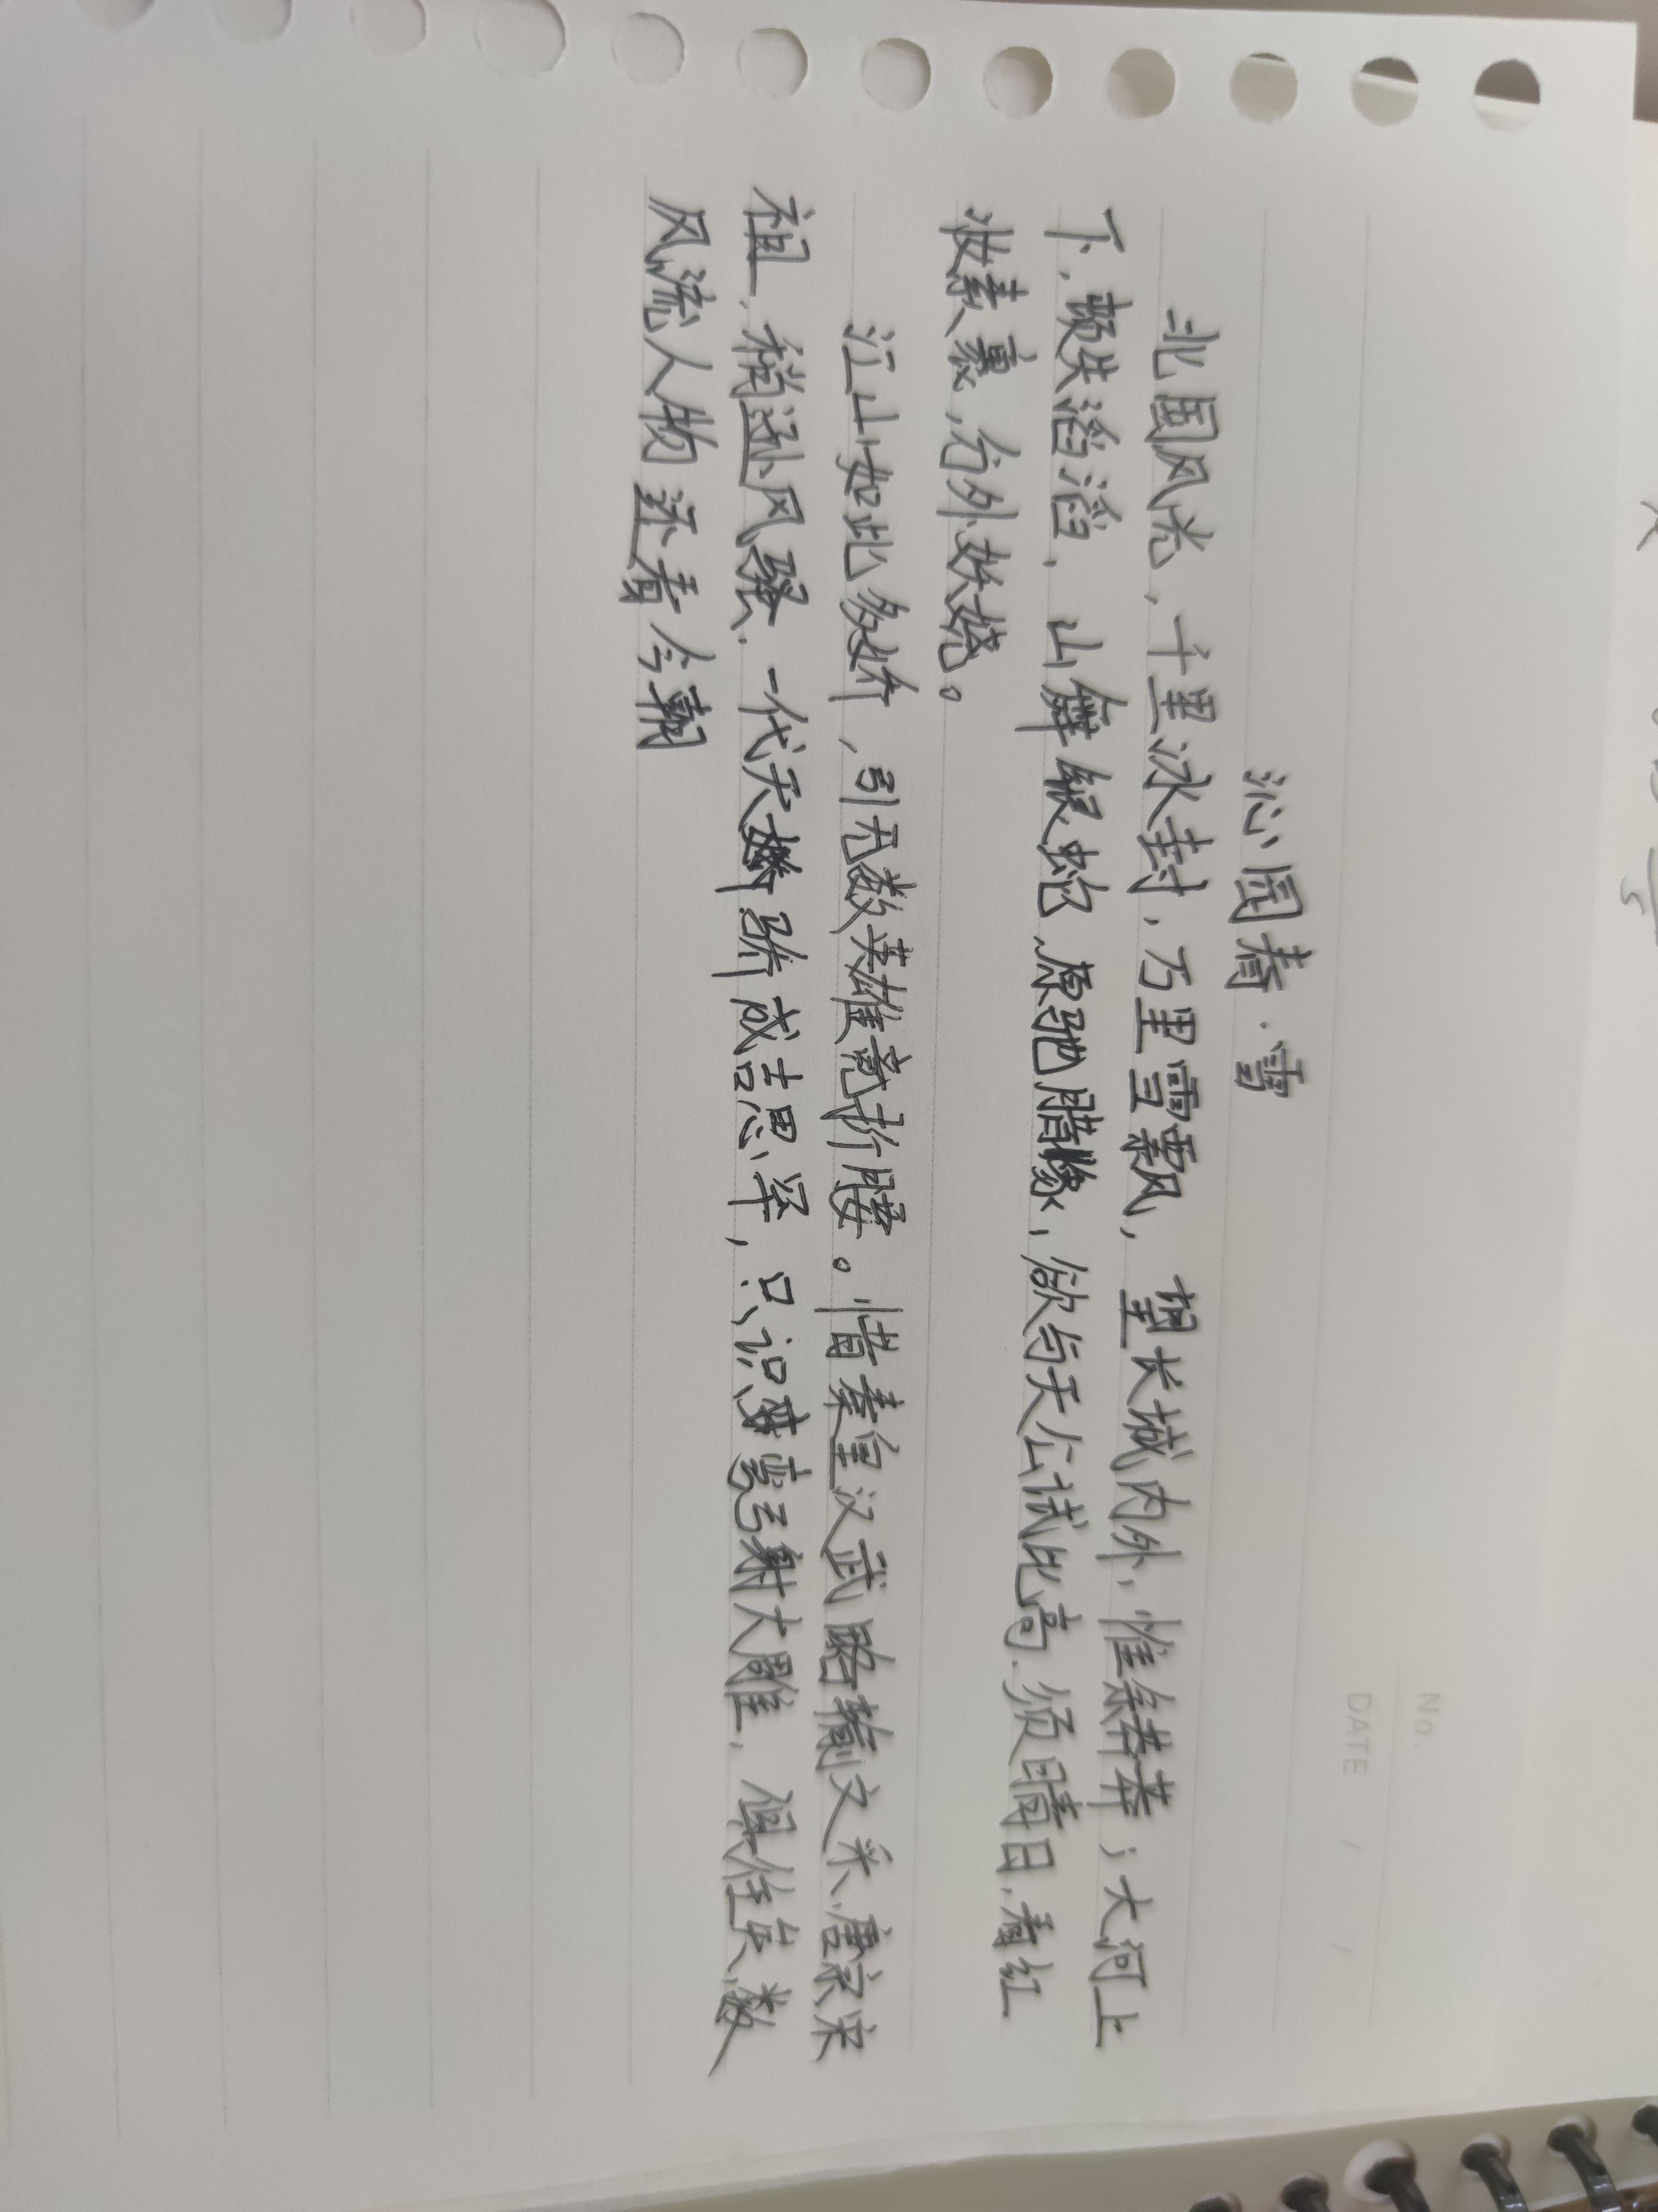 No.
DATE / /
沁园春·雪
北国风光,千里冰封,万里雪飘,望长城内外,惟余莽莽;大河上
下,顿失滔滔,山舞银蛇、原驰腊象,欲与天公试比高.须晴日,看红
妆素裹,分外妖娆。
江山如此多娇,引无数英雄竞折腰。惜秦皇汉武略输文采、唐宗宋
祖,稍逊风骚.一代天骄成吉思罕,只识弯弓射大雕.俱往矣,数
风流人物还看今朝